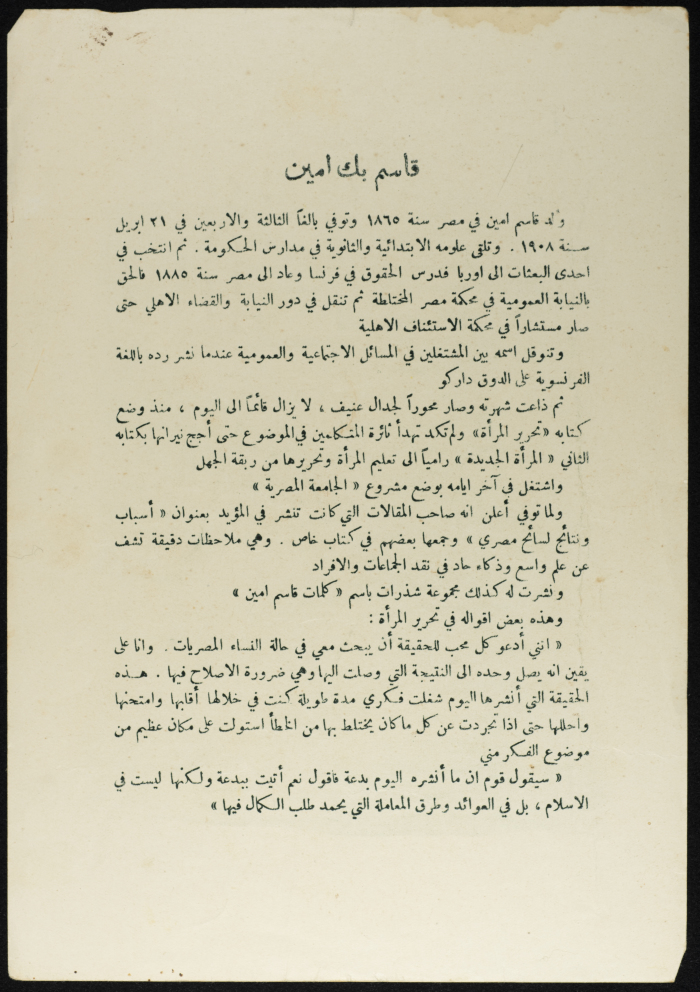 قاسم بك امين
ولد قاسم امين في مصر سنة ١٨٦٥ وتوفي بالغاً الثالثة والاربعين في ٢١ ابريل
سنة ١٩٠٨ . وتلقى علومه الابتدائية والثانوية في مدارس الحكومة . ثم انتخب في
احدى البعثات الى اوربا فدرس الحقوق في فرنسا وعاد الى مصر سنة ١٨٨٥ فالحق
بالنيابة العمومية في محكمة مصر المختلطة ثم تنقل في دور النيابة والقضاء الاهلي حتى
صار مستشاراً في محكمة الاستئناف الاهلية
وتنوقل اسمه بين المشتغلين في المسائل الاجتماعية والعمومية عندما نشر رده باللغة
الفرنسوية على الدوق داركو
ثم ذاعت شهرته وصار محوراً لجدال عنيف ، لا يزال قائماً الى اليوم ، منذ وضع
كتابه «تحرير المرأة» ولم تكد تهدأ ثائرة المتكلمين في الموضوع حتى أجج نيرانها بكتابه
الثاني « المرأة الجديدة » رامياً الى تعليم المرأة وتحريرها من ربقة الجهل
واشتغل في آخر ايامه بوضع مشروع « الجامعة المصرية »
ولما توفي أعلن انه صاحب المقالات التي كانت تنشر في المؤيد بعنوان « أسباب
ونتائج لسائح مصري » وجمعها بعضهم في كتاب خاص . وهي ملاحظات دقيقة تشف
عن علم واسع وذكاء حاد في نقد الجماعات والافراد
ونشرت له كذلك مجموعة شذرات باسم « كلمات قاسم امين »
وهذه بعض اقواله في تحرير المرأة :
« انني أدعو كل محب للحقيقة أن يبحث معي في حالة النساء المصريات . وانا على
يقين انه يصل وحده الى النتيجة التي وصلت اليها وهي ضرورة الاصلاح فيها . هذه
الحقيقة التي أنشرها اليوم شغلت فكري مدة طويلة كنت في خلالها أقلبها وامتحنها
واحللها حتى اذا تجردت عن كل ما كان يختلط بها من الخطأ استولت على مكان عظيم من
موضوع الفكر مني
« سيقول قوم ان ما أنشره اليوم بدعة فاقول نعم أتيت ببدعة ولكنها ليست في
الاسلام ، بل في العوائد وطرق المعاملة التي يحمد طلب الكمال فيها »